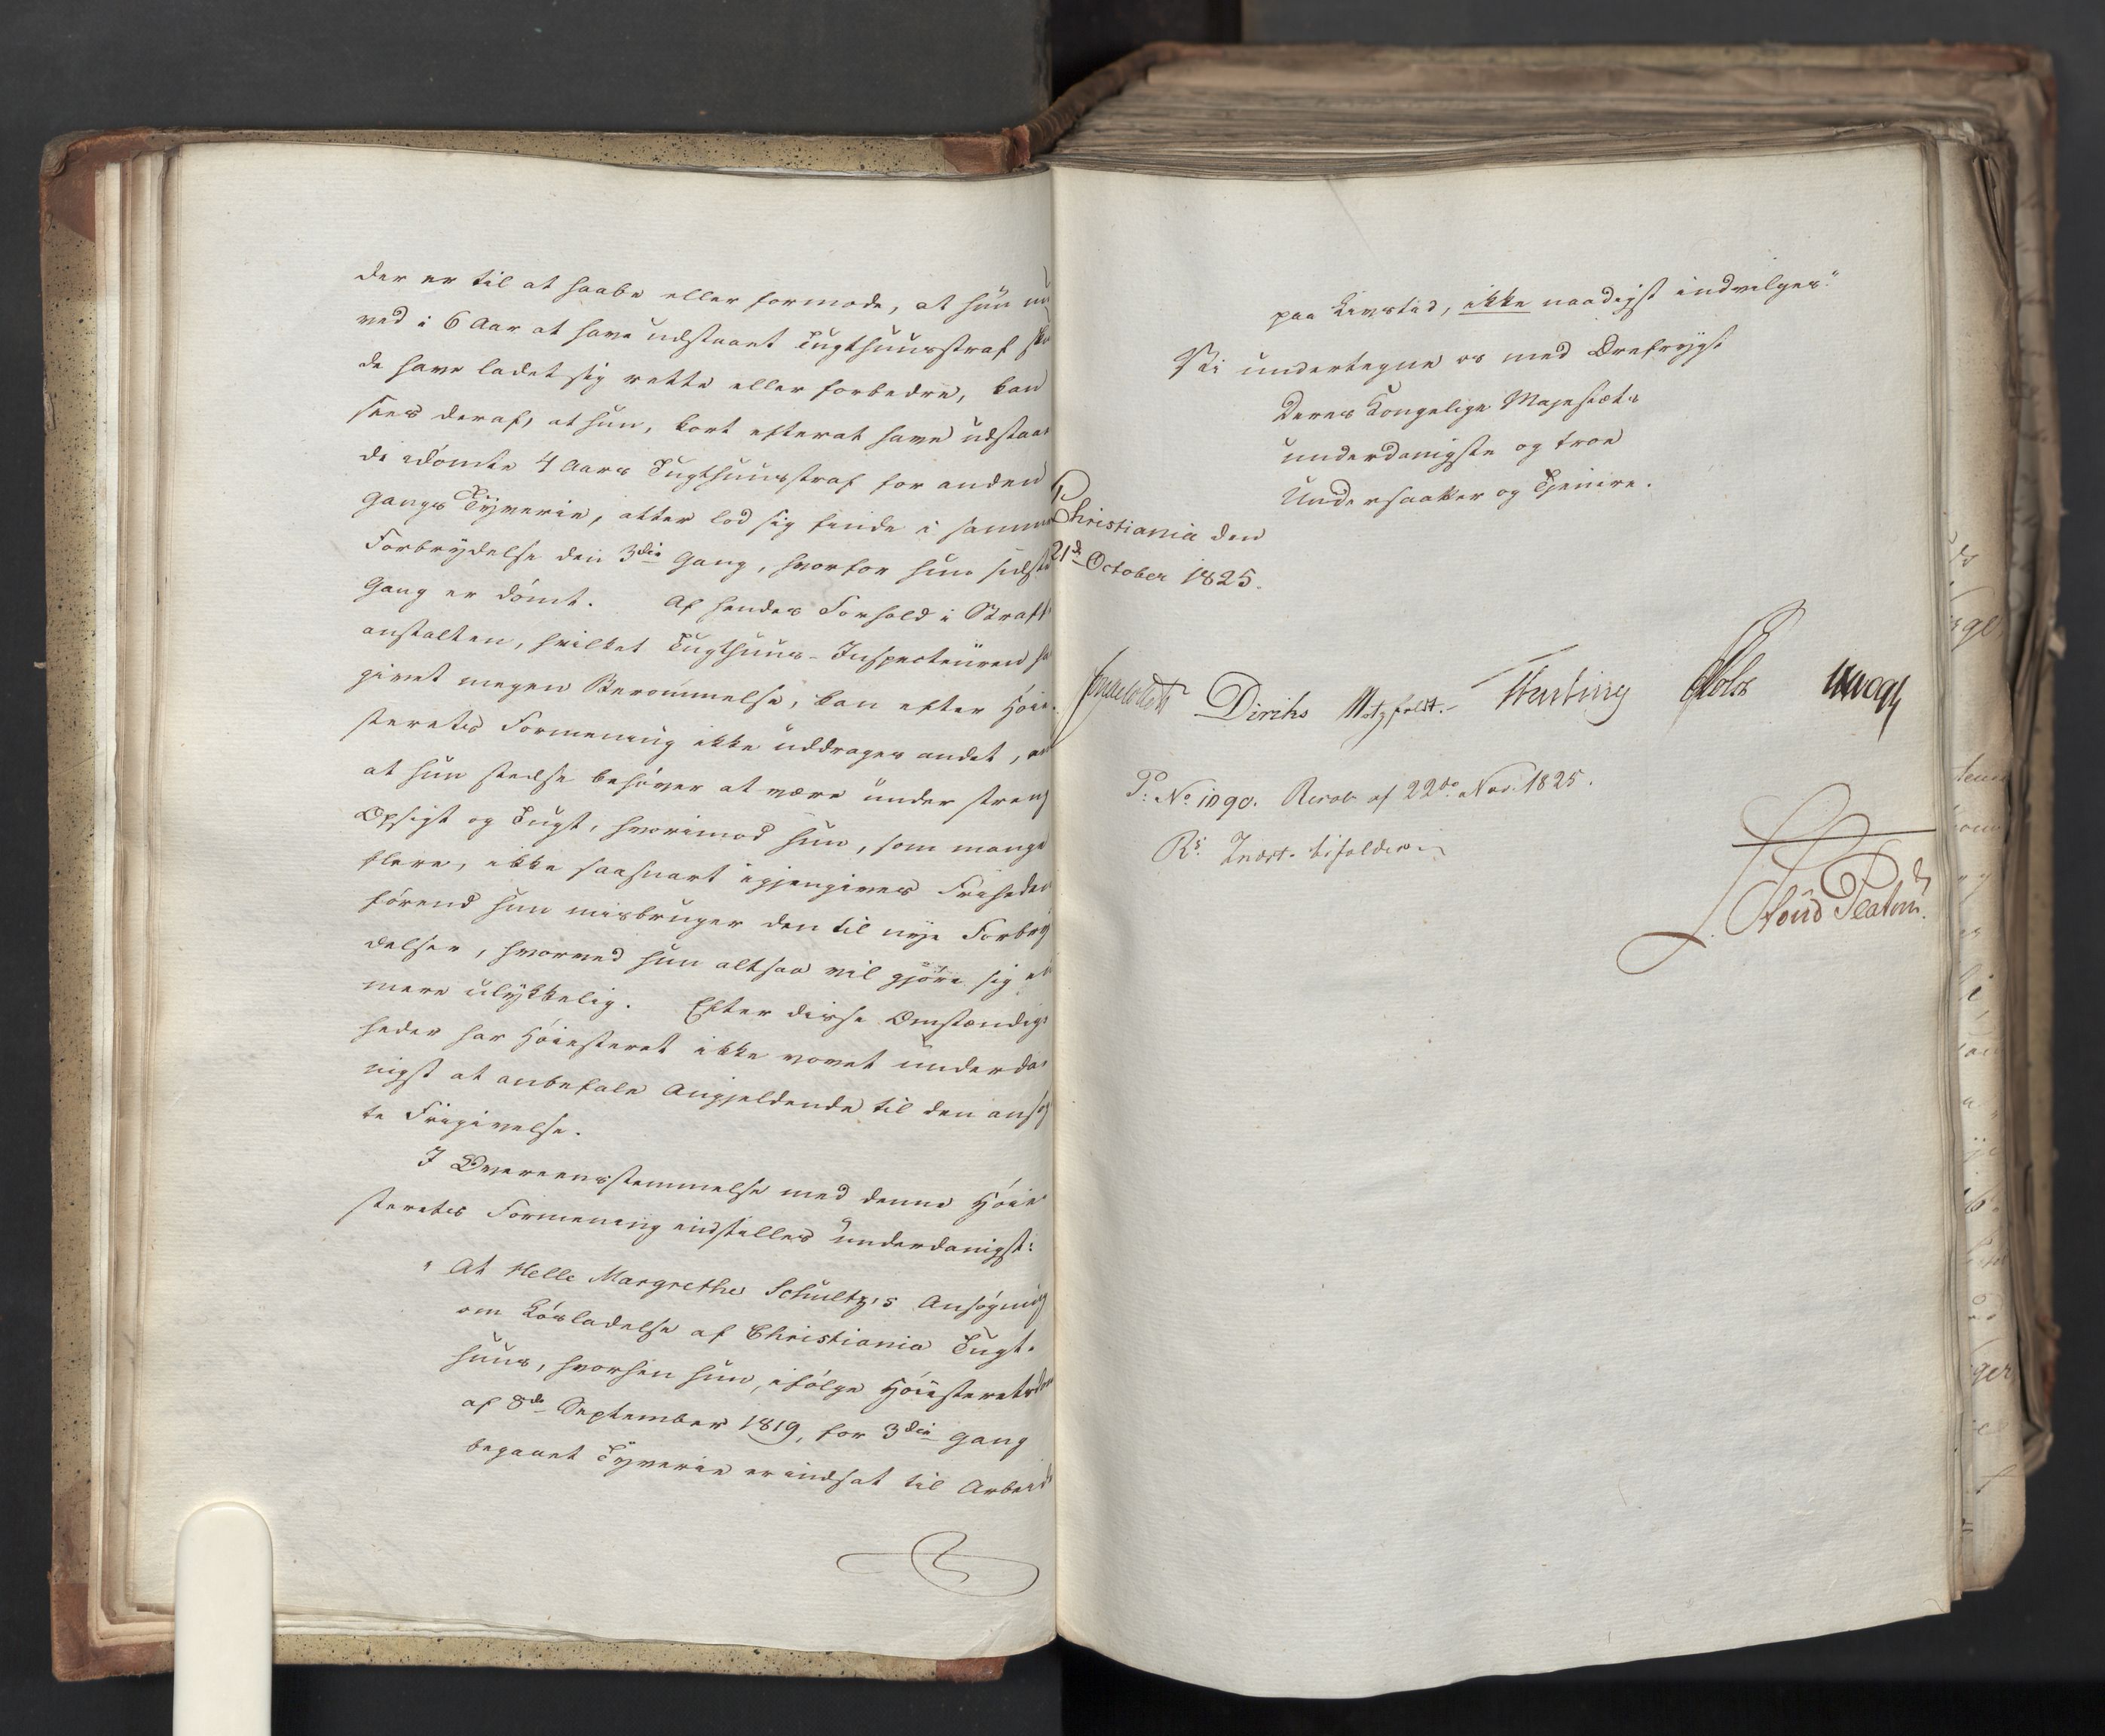 der er til at haabe eller formode, at hun nu
ved i 6 Aar at have udstaaet Tugthuusstraf skul
de have ladet sig rette eller forbedre, kan
sees deraf, at hun, kort efterat have udstaaet
de idømte 4 Aars Tugthuusstraf for anden
Gangs Tyverie, atter lod sig finde i samme
Forbrydelse den 3die Gang, hvorfor hun sidste
Gang er dømt. Af hendes Forhold i Straff-
anstalten, hvilket Tugthuus-Inspecteuren har
givet megen Berømmelse, kan efter Høie-
steretes Formening ikke uddrages andet, end
at hun stedse behøver at være under streng
Opsigt og Tugt, hvorimod hun, som mange
flere, ikke saasnart igjengives Friheden
førend hun misbruger den til nye Forbry
delser, hvorved hun altsaa vil gjøre sig end
mere ulykkelig. Efter disse Omstændig-
heder har Høiesteret ikke vovet underda-
nigst at anbefale Angjeldende til den ansøg
te Frigivelse.
I Overeensstemmelse med denne Høie-
steretes Formening indstilles underdanigst:
"At Helle Margrethe Schultz's Ansøgning
om Løsladelse af Christiania Tugt-
huus, hvorhen hun, ifølge Høiesteretsdom
af 8de September 1819, for 3die Gang
begaaet Tyverie er indsat til Arbeide
paa Livstid, ikke naadigst indvilges."
Vi undertegne os med Ærefrygt
Deres Kongelige Majestæts
underdanigste og troe
Undersaatter og Tjenere.
Christiania den
21de October 1825.
Diriks Motzfeldt.
P: No 1090. Resol. af 22de Nov. 1825.
Rs. Indst. bifaldes